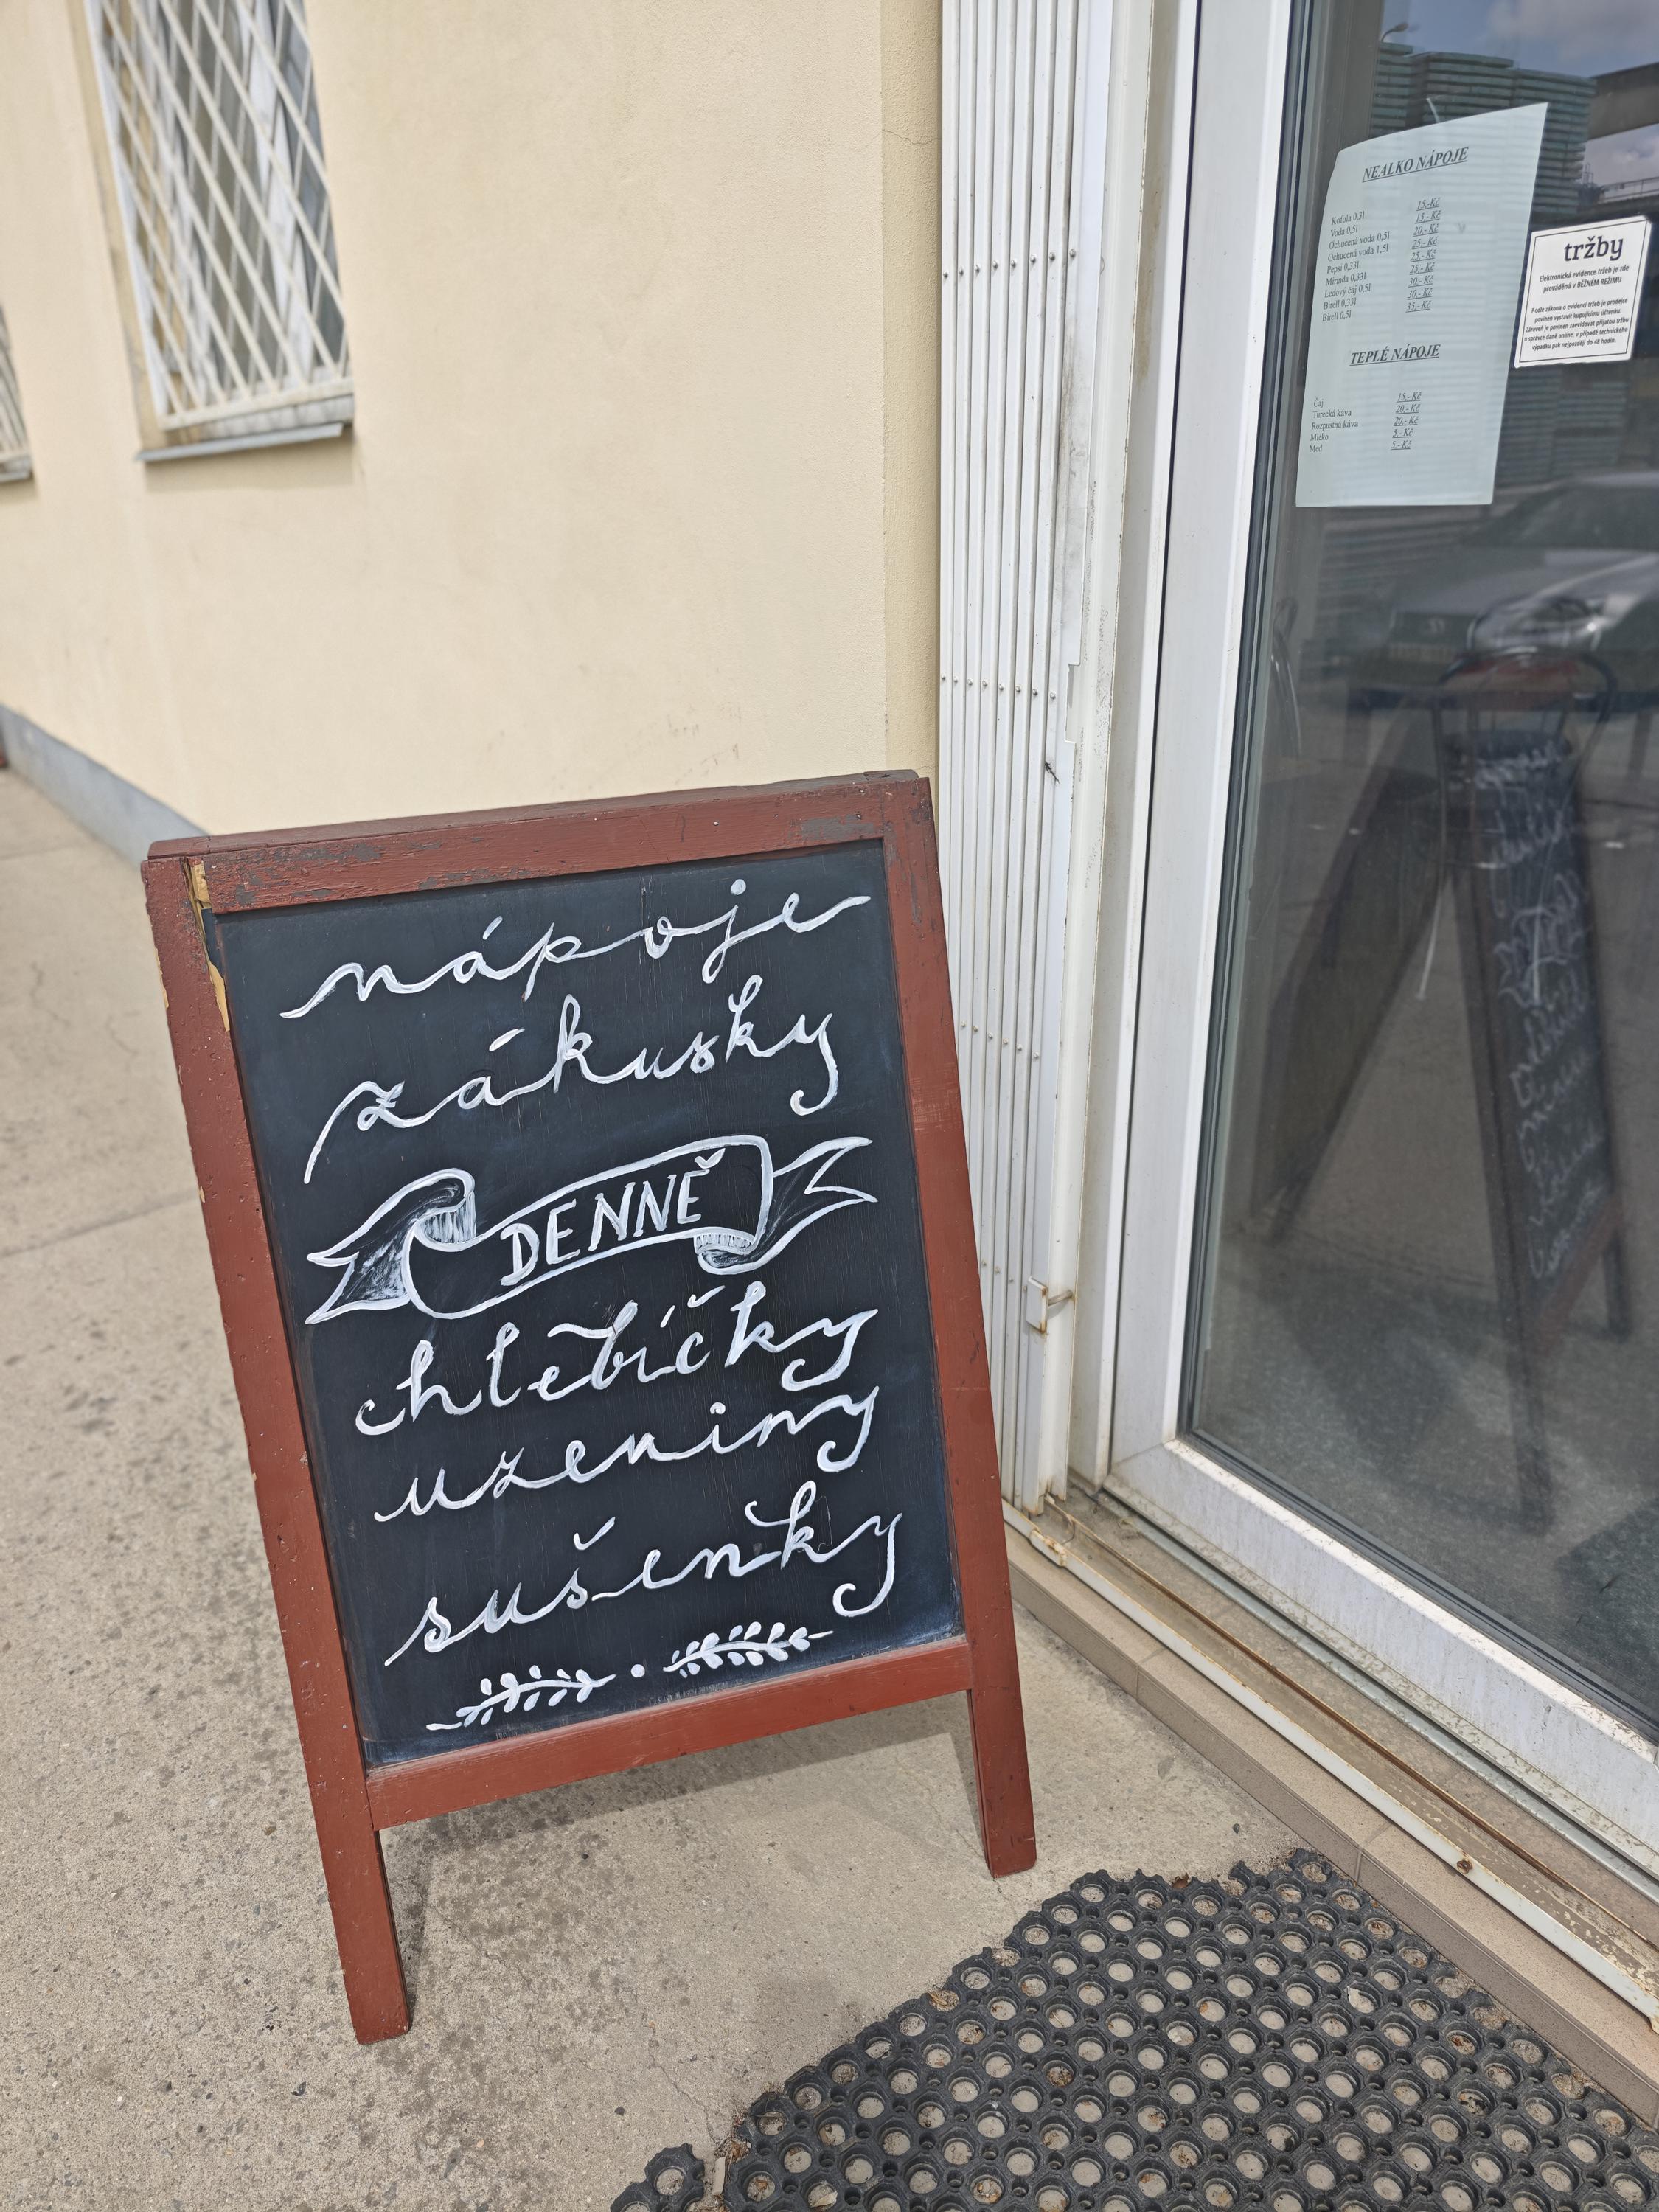 nápoje
zákusky
DENNĚ
chlebíčky
uzeniny
sušenky
NEALKO NÁPOJE
Kofola 0,3l 15,-Kč
Voda 0,5l 15,- Kč
Ochucená voda 0,5l 20,- Kč
Ochucená voda 1,5l 25,- Kč
Pepsi 0,33l 25,- Kč
Mirinda 0,33l 25,- Kč
Ledový čaj 0,5l 30,- Kč
Birell 0,33l 30,- Kč
Birell 0,5l 35,- Kč
TEPLÉ NÁPOJE
Čaj 15,- Kč
Turecká káva 20,- Kč
Rozpustná káva 20,- Kč
Mléko 5,- Kč
Med 5,- Kč
tržby
Elektronická evidence tržeb je zde
prováděná v BĚŽNÉM REŽIMU
Podle zákona o evidenci tržeb je prodejce
povinen vystavit kupujícímu účtenku.
Zároveň je povinen zaevidovat přijatou tržbu
u správce daně online, v případě technického
výpadku pak nejpozději do 48 hodin.